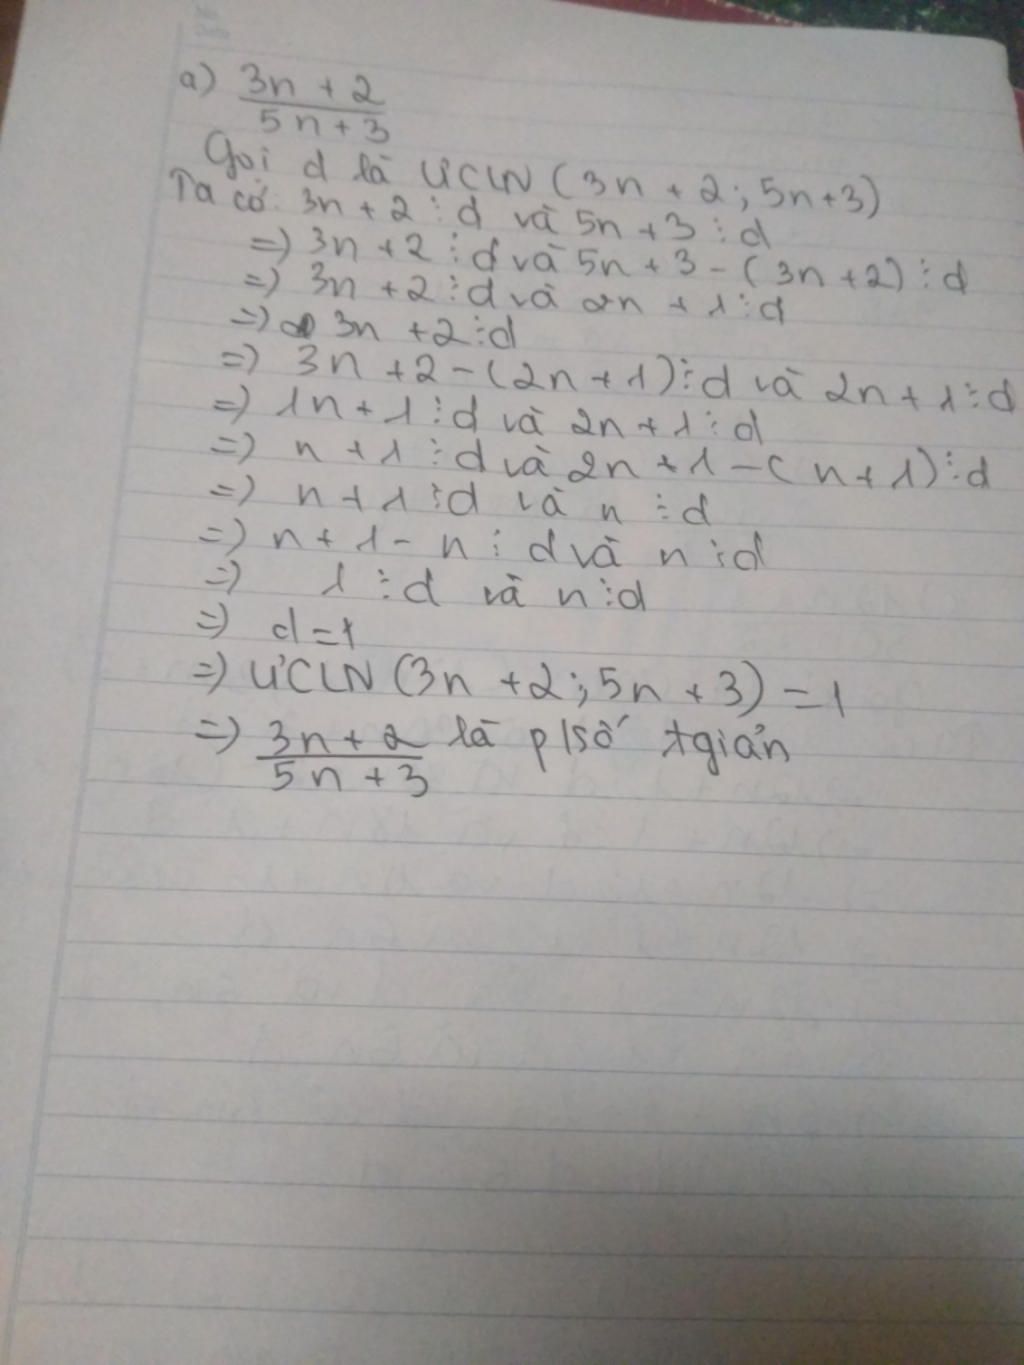 a) 3n + 2
5n + 3
Gọi d là ƯCLN (3n + 2; 5n+3)
Ta có: 3n + 2 ⋮ d và 5n + 3 ⋮ d
=) 3n + 2 ⋮ d và 5n + 3 - (3n + 2) ⋮ d
=) 3n + 2 ⋮ d và 2n + 1 ⋮ d
=) 3n + 2 ⋮ d
=) 3n + 2 - (2n + 1) ⋮ d và 2n + 1 ⋮ d
=) 1n + 1 ⋮ d và 2n + 1 ⋮ d
=) n + 1 ⋮ d và 2n + 1 - (n + 1) ⋮ d
=) n + 1 ⋮ d và n ⋮ d
=) n + 1 - n ⋮ d và n ⋮ d
=) 1 ⋮ d và n ⋮ d
=) d = 1
=) ƯCLN (3n + 2; 5n + 3) = 1
=) 3n + 2 là p/số tgiản
5n + 3